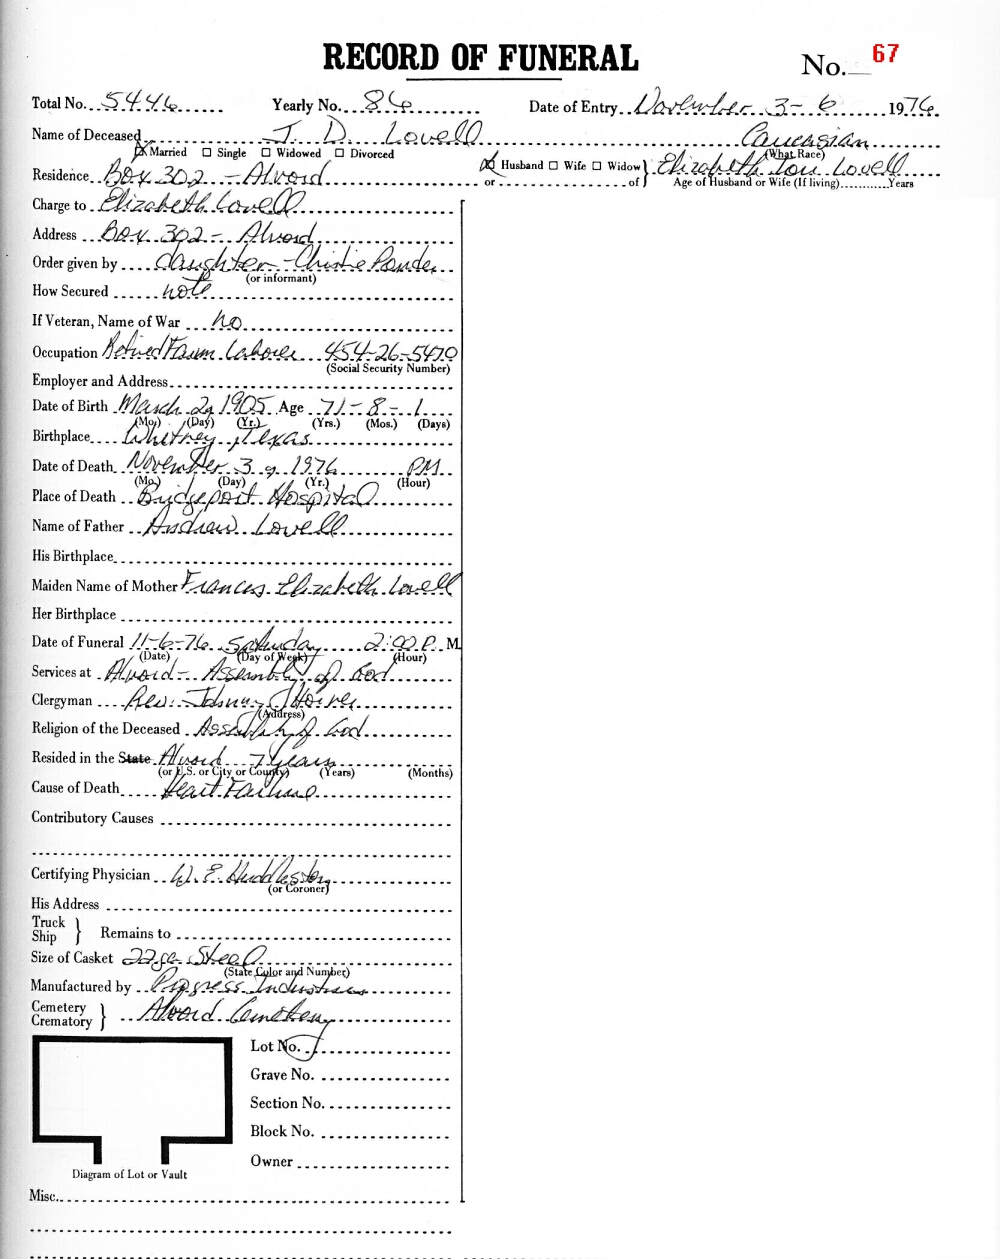 RECORD OF FUNERAL
No. 67
Total No. 5446 Yearly No. 86 Date of Entry November 3-6 1976
Name of Deceased J. D. Lowell Caucasian
(What Race)
☒ Married ☐ Single ☐ Widowed ☐ Divorced ☒ Husband ☐ Wife ☐ Widow } Elizabeth Lou Lowell
or of } Age of Husband or Wife (If living) Years
Residence Box 302 - Alvord
Charge to Elizabeth Lowell
Address Box 302 - Alvord
Order given by daughter - Christie
(or informant)
How Secured note
If Veteran, Name of War no
Occupation Retired Farm Laborer 454-26-5470
(Social Security Number)
Employer and Address
Date of Birth March 2, 1905 Age 71-8-1
(Mo.) (Day) (Yr.) (Yrs.) (Mos.) (Days)
Birthplace Whitney, Texas
Date of Death November 3, 1976 PM
(Mo.) (Day) (Yr.) (Hour)
Place of Death Bridgeport Hospital
Name of Father Andrew Lowell
His Birthplace
Maiden Name of Mother Frances Elizabeth Lowell
Her Birthplace
Date of Funeral 11-6-76 Saturday 2:00 P. M.
(Date) (Day of Week) (Hour)
Services at Alvord - Assembly of God
Clergyman Rev. Johnny
(Address)
Religion of the Deceased Assembly of God
Resided in the State Alvord 7 years
(or U.S. or City or County) (Years) (Months)
Cause of Death Heart Failure
Contributory Causes
Certifying Physician W. E. Huddleston
(or Coroner)
His Address
Truck
Ship } Remains to
Size of Casket 22 ga Steel
(State Color and Number)
Manufactured by Progress Industries
Cemetery
Crematory } Alvord Cemetery
Lot No.
Grave No.
Section No.
Block No.
Owner
Diagram of Lot or Vault
Misc.